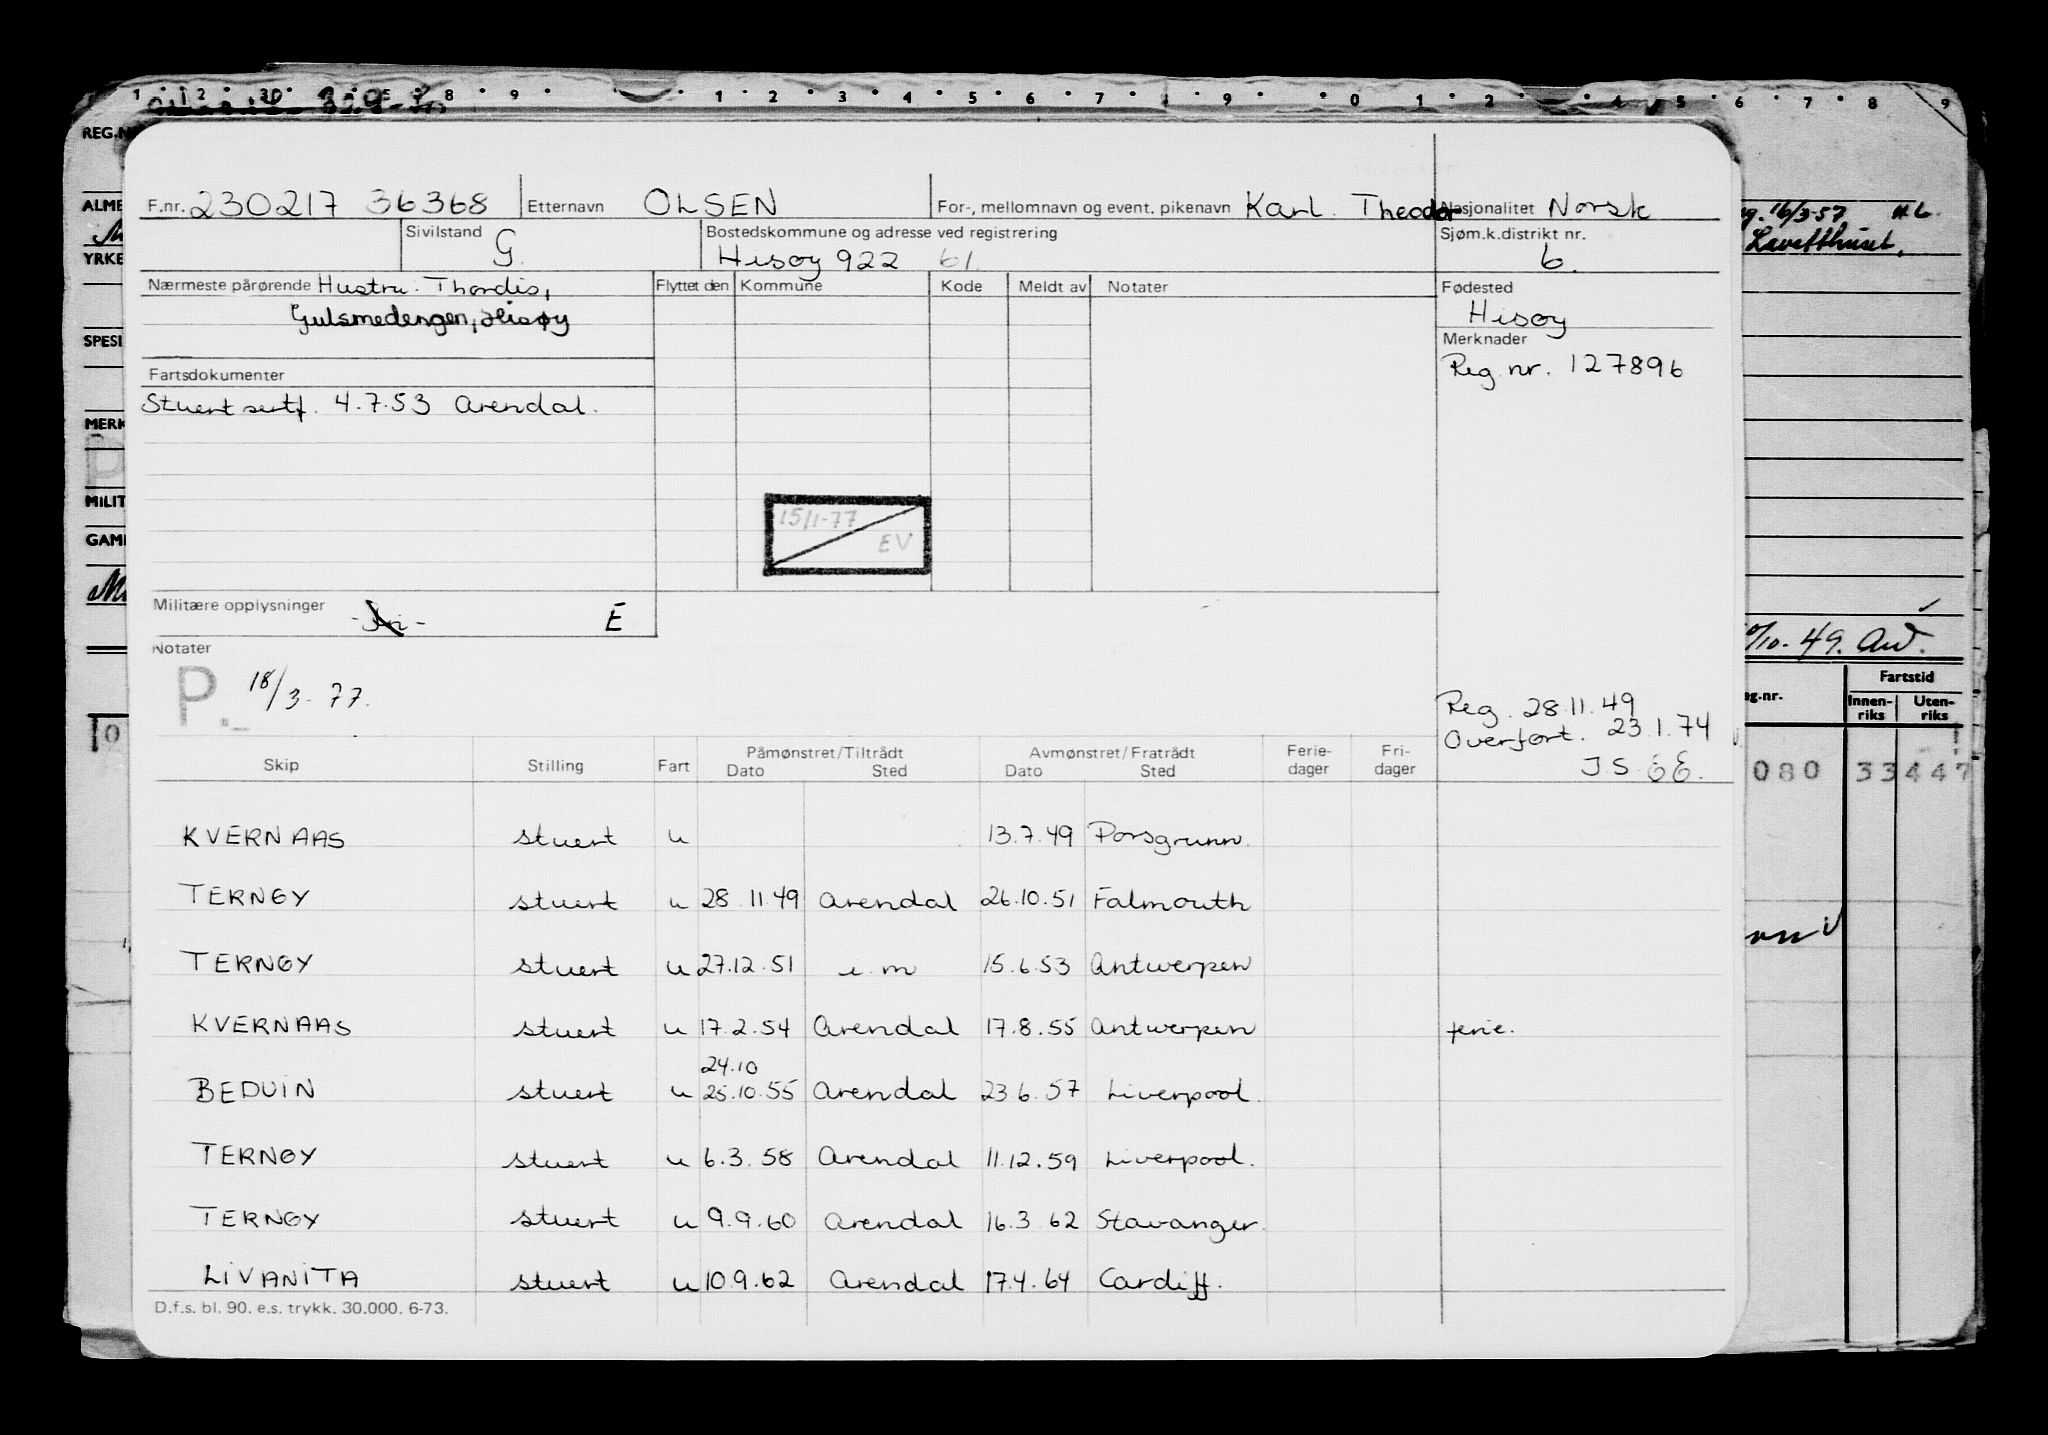 1 2 30 4 5 8 9 1 2 3 4 5 6 7 9 0 1 2 4 5 6 7 8 9
REG.N
F.nr. 230217 36368 Etternavn OLSEN For-, mellomnavn og event. pikenavn Karl Theodor Nasjonalitet Norsk
ALME
16/3-57
Sivilstand G. Bostedskommune og adresse ved registrering Sjøm.k.distrikt nr.
Hisøy 922 61. 6.
YRKE
Nærmeste pårørende Hustru: Thordis, Flyttet den Kommune Kode Meldt av Notater Fødested
Gulsmedengen, Hisøy Hisøy
SPESI
Merknader
Reg. nr. 127896
Fartsdokumenter
Stuert sertf. 4.7.53 Arendal.
MERK
MILIT
15/1-77
EV
GAM
Militære opplysninger E
Notater
P. 18/3-77.
/10-49. Aw.
Fartstid
g.nr. Innen-riks Uten-riks
Reg. 28.11.49
Overført. 23.1.74
J.S. EE.
Skip Stilling Fart Påmønstret/Tiltrådt Dato Sted Avmønstret/Fratrådt Dato Sted Ferie-dager Fri-dager
080 33 447
KVERNAAS stuert u 13.7.49 Porsgrunn.
TERNØY stuert u 28.11.49 Arendal 26.10.51 Falmouth
TERNØY stuert u 27.12.51 u.m 15.6.53 Antwerpen
KVERNAAS stuert u 17.2.54 Arendal 17.8.55 Antwerpen ferie.
24.10
BEDUIN stuert u 25.10.55 Arendal 23.6.57 Liverpool.
TERNØY stuert u 6.3.58 Arendal 11.12.59 Liverpool.
TERNØY stuert u 9.9.60 Arendal 16.3.62 Stavanger.
LIVANITA stuert u 10.9.62 Arendal 17.4.64 Cardiff.
D.f.s. bl. 90. e.s. trykk. 30.000. 6-73.